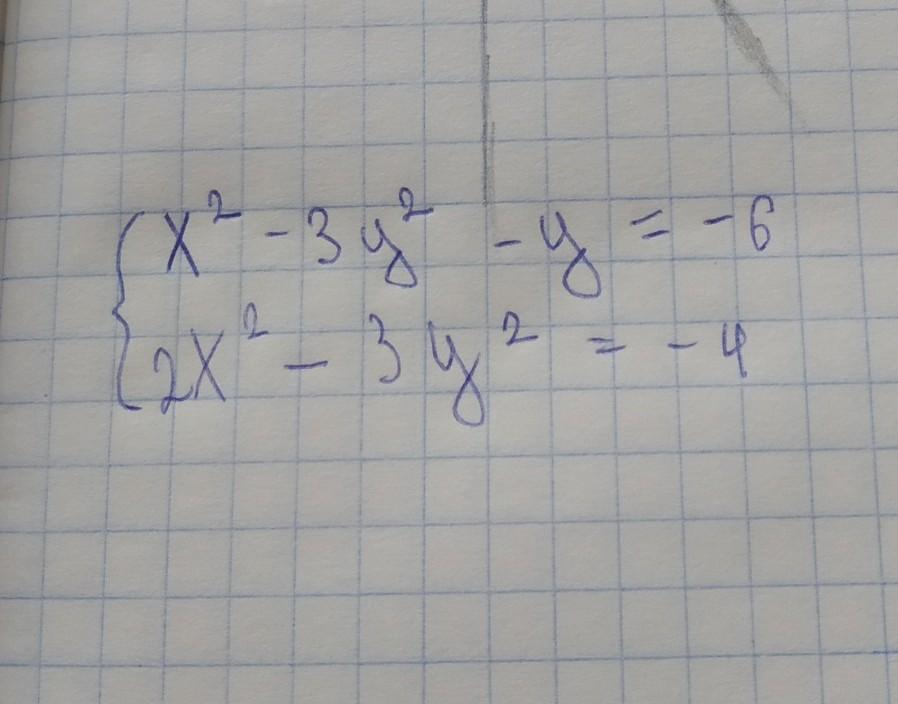 x² - 3y² - y = -6
2x² - 3y² = -4